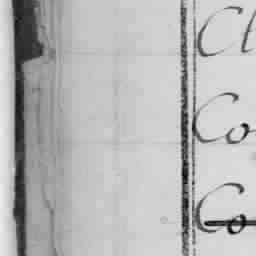 Cl
Co
Co